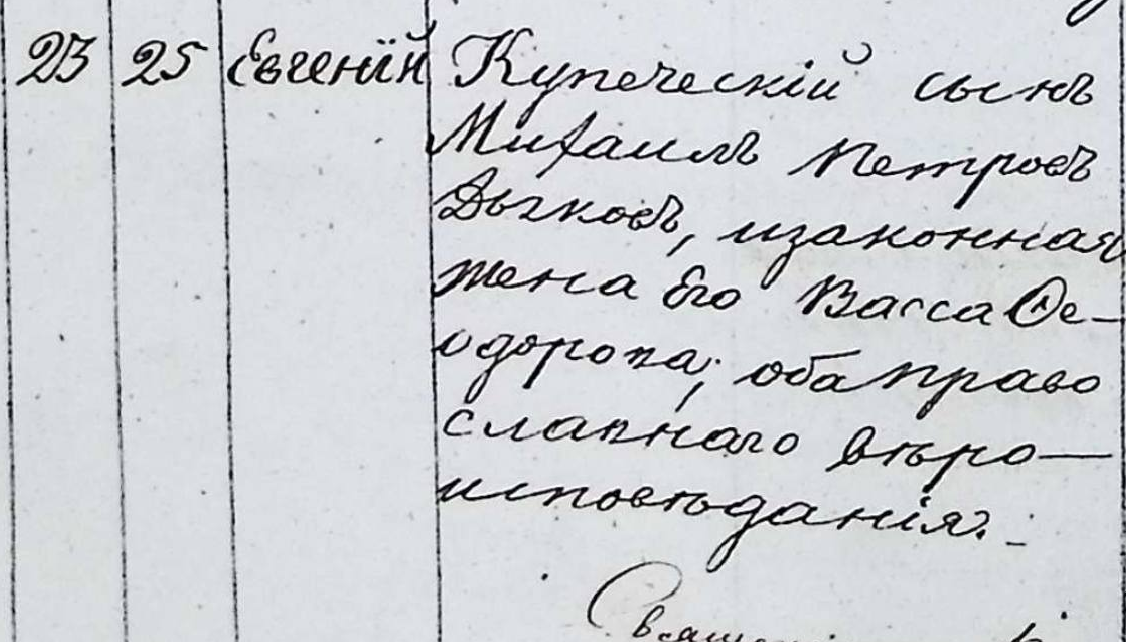 23 25 Евгенїй Купеческій сынъ
Михаилъ Петровъ
Дычковъ, изаконная
жена Его Васса Ѳе-
одорова; оба право
славнаго вѣро-
исповѣданія.